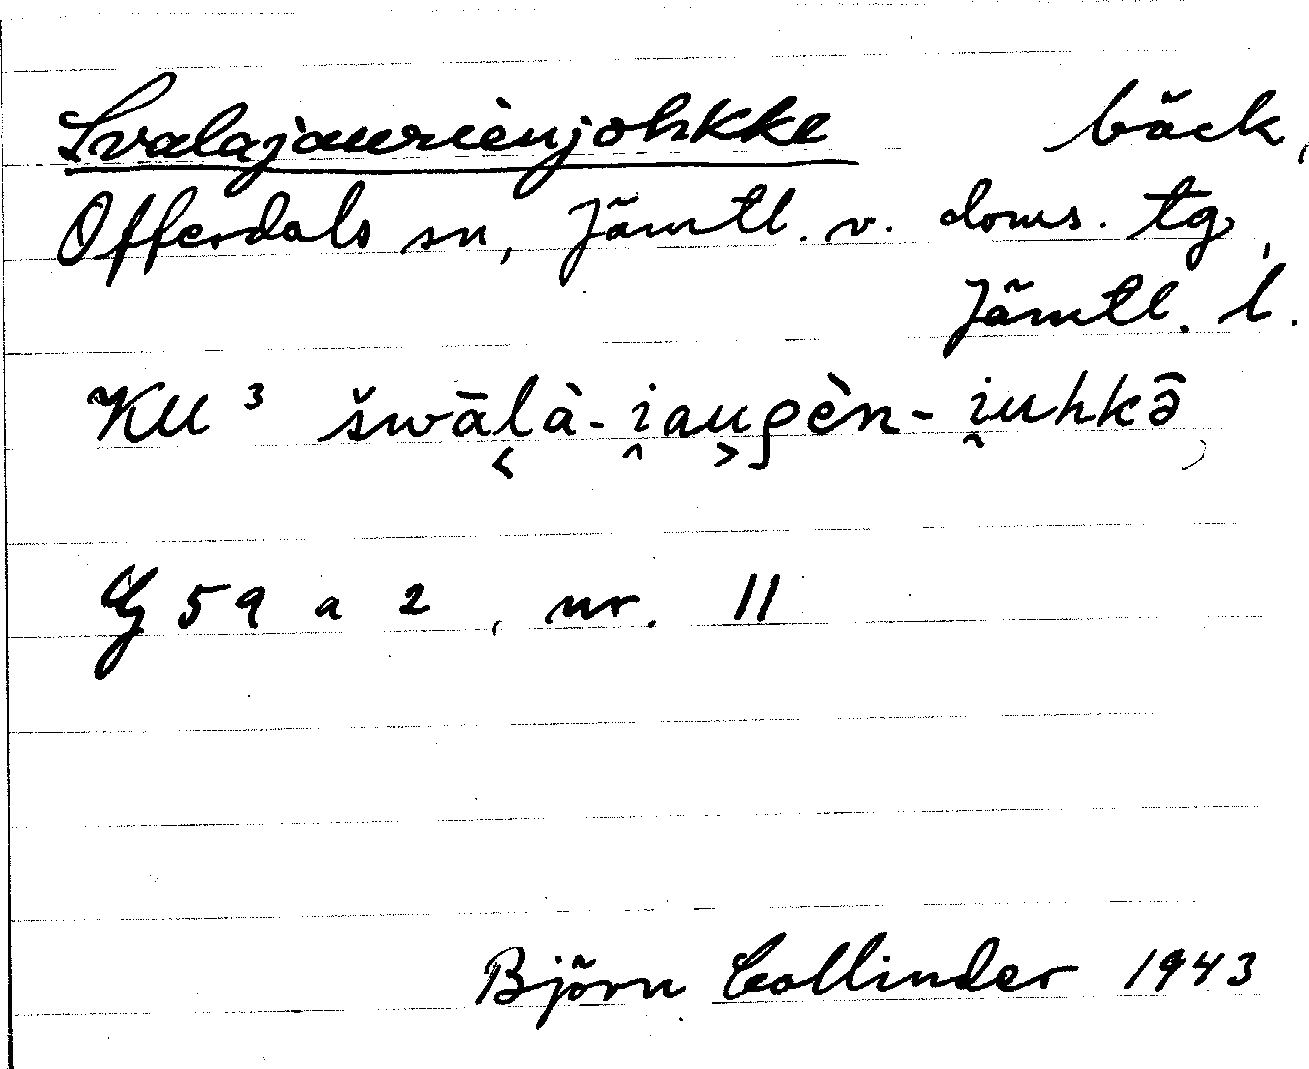 Svalajauriènjohkke bäck,
Offerdals sn, Jämtl. v. doms. tg,
Jämtl. l.
KU ³ šwāl̬à-i̭au̬ρèn-i̭uhkə̄,
G 59 a 2, nr. 11
Björn Collinder 1943